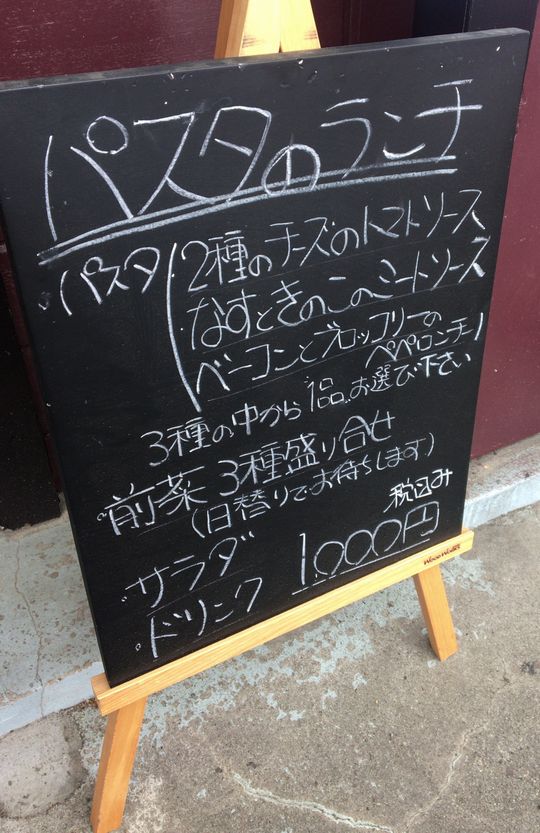 パスタのランチ
パスタ 2種のチーズのトマトソース
なすときのこのミートソース
ベーコンとブロッコリーの
ペペロンチーノ
3種の中から1品、お選び下さい
前菜 3種盛り合せ
(日替りでお待ちします)
サラダ
ドリンク
税込み
1,000円